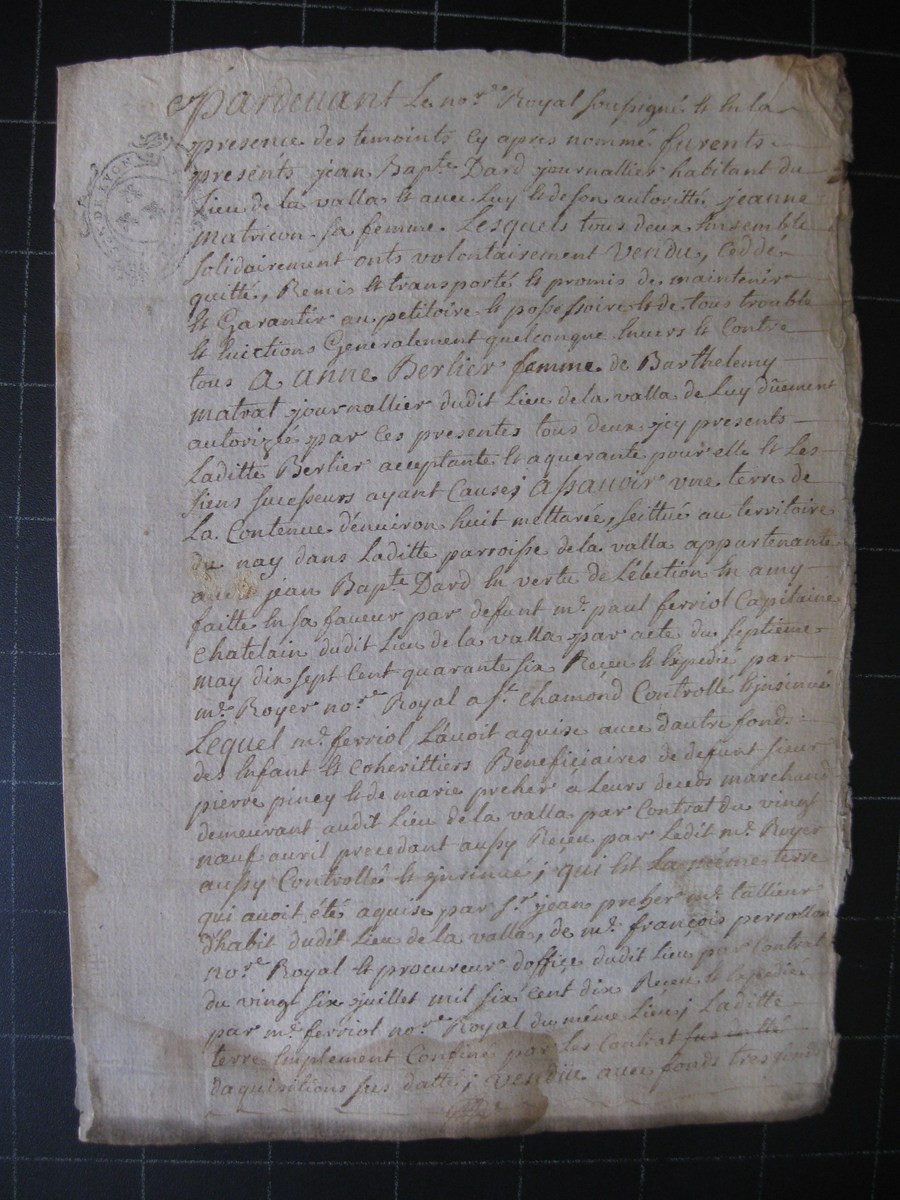 Pardevant Le no.re Royal soussigné et en la
presence des temoints cy apres nommé furents
presénts jean Bap.te Dard journallier habitant du
Lieu de la valla et avec Luy et de son autoritté jeanne
matricon sa femme. Lesquels tous deux Ensemble
solidairement onts volontairement vendu, Ceddé
quitté, Remis et transporté et promis de maintenir
et Garantir au petitoire et possessoire et de tous trouble
et Evictions Generalement quelconque Envers et Contre
tous A anne Berlier femme de Barthelemy
matrat journallier dudit Lieu de la valla de Luy dûement
autorizée par Ces presentes tous deux jcy presents
Laditte Berlier acceptante et aquerante pour elle et Les
siens sucesseurs ayant Causes Assavoir une terre de
La Contenue d'environ huit mettarée, scittué au territoire
du nay dans Laditte parroisse de la valla appartenante
jean Bap.te Dard En vertu de L'élection En amy
faitte En sa faveur par defunt m.e paul ferriol Capitaine
chatelain dudit Lieu de la valla par acte du septième
may dix sept Cent quarante six Receu et Expedié par
m.e Royer no.re Royal a s.t chamond Controllé et insinué
Lequel m.e ferriol L'avoit aquise avec d'autre fond
des Enfant et Coherittiers Beneficiaires de defunt sieur
pierre piney et de marie preher a Leurs deceds marchand
demeurant audit Lieu de la valla par Contrat du vingt
nœuf avril precedant aussy Receu par Ledit m.e Royer
aussy Controllé et jnsinué; qui est La même terre
qui avoit été aquise par s.r jean preher m.e tallieur
d'habit dudit Lieu de la valla, de m.e françois perrollon
no.re Royal et procureur d'office dudit Lieu par Contrat
du vingt six juillet mil six cent dix Receu et Expedié
par m.e ferriol no.re Royal du même Lieu; Laditte
terre Emplement Confiné par Les Contrat
d'aquisitions sus datté; vendue avec fonds tres fonds